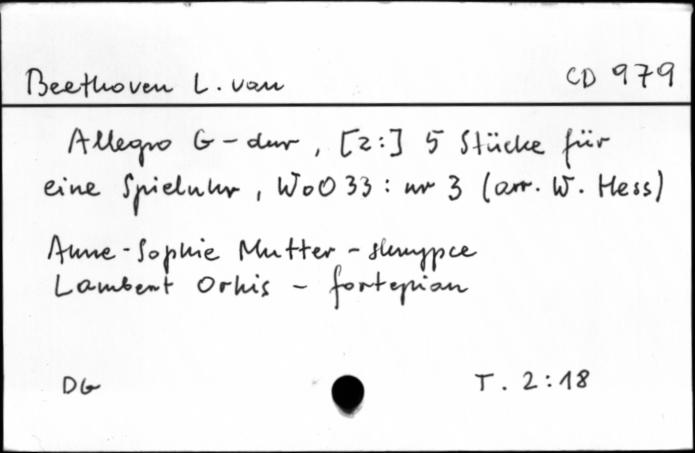 Beethoven L. van CD 979
Allegro G-dur, [z:] 5 Stücke für
eine Spieluhr, WoO 33: nr 3 (arr. W. Hess)
Anne-Sophie Mutter - skrzypce
Lambert Orkis - fortepian
DG T. 2:18